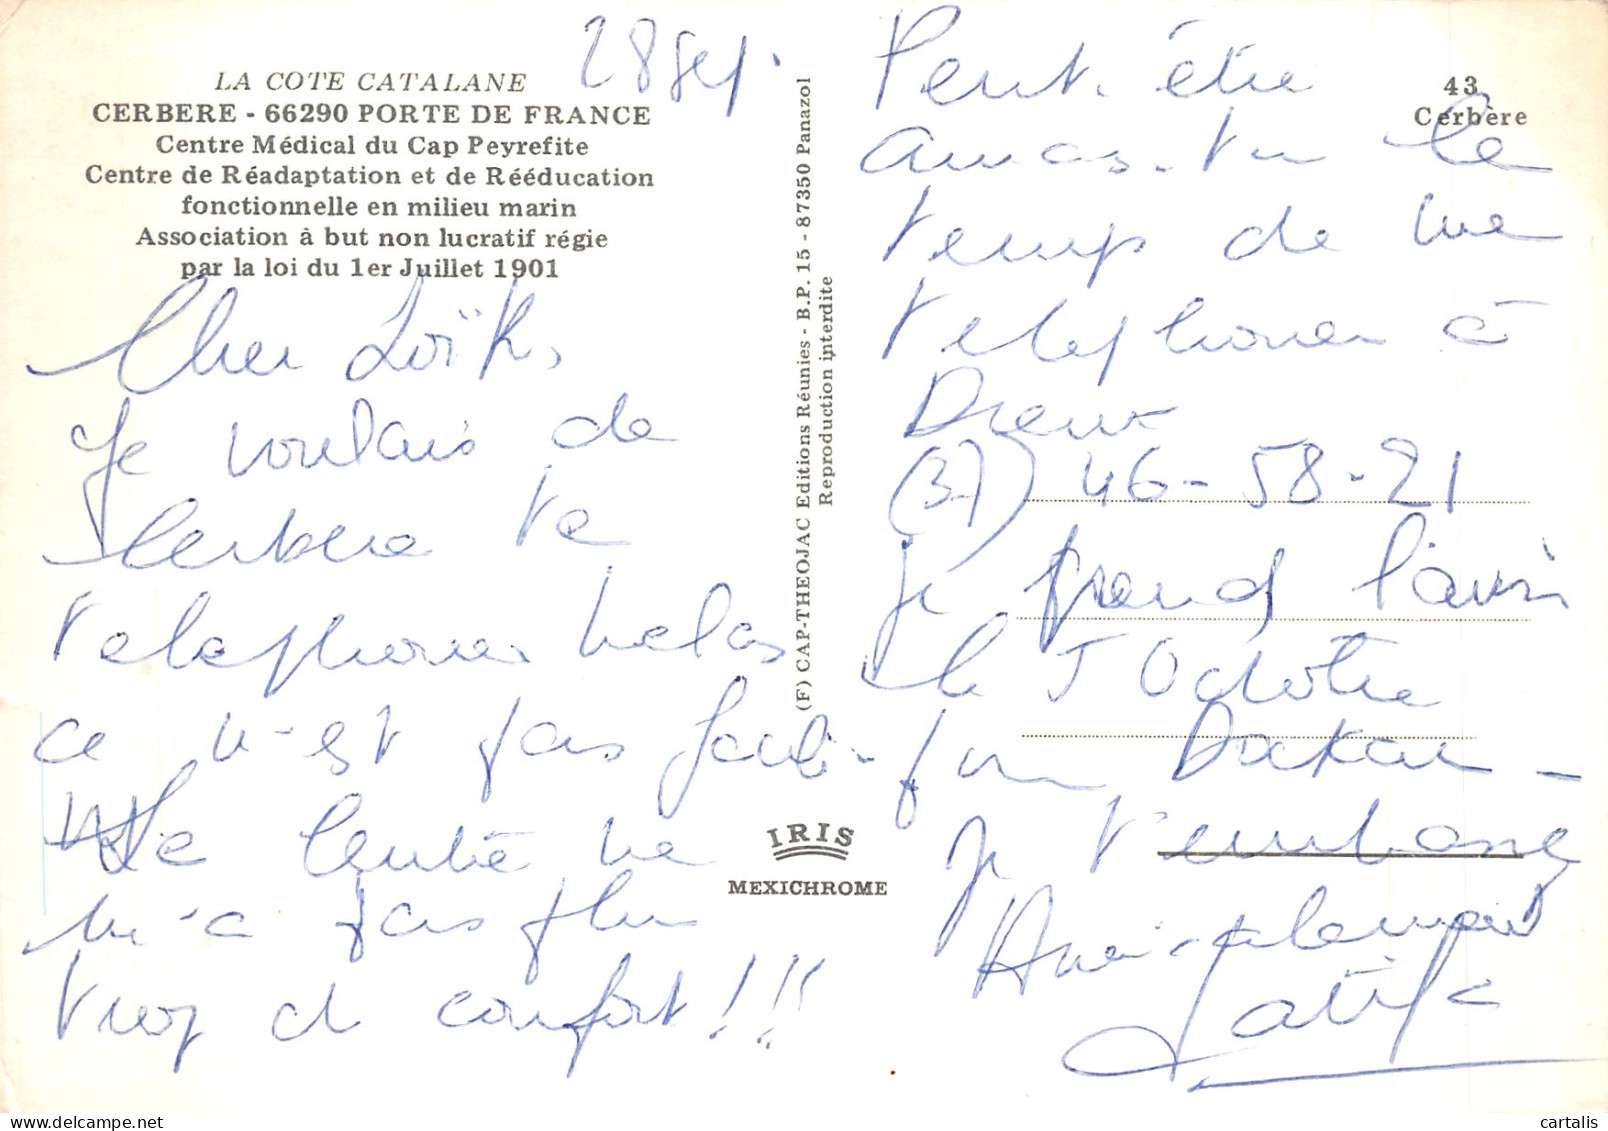 28 sep.
LA COTE CATALANE
CERBERE - 66290 PORTE DE FRANCE
Centre Médical du Cap Peyrefite
Centre de Réadaptation et de Rééducation
fonctionnelle en milieu marin
Association à but non lucratif régie
par la loi du 1er Juillet 1901
Cher Loïk,
Je voulais de
Cerbere te
telephoner helas
ce n'est pas
Le centre ne
m'a pas plu
trop d confort !!!
(F) CAP-THEOJAC Editions Réunies - B.P. 15 - 87350 Panazol
Reproduction interdite
IRIS
MEXICHROME
43
Cerbère
Peut-être
auras-tu le
temps de me
telephoner à
Dreux
(37) 46-58-21
je prend l'avion
le 5 Octobre
pour Dakar -
je t'embrasse
Amicalement